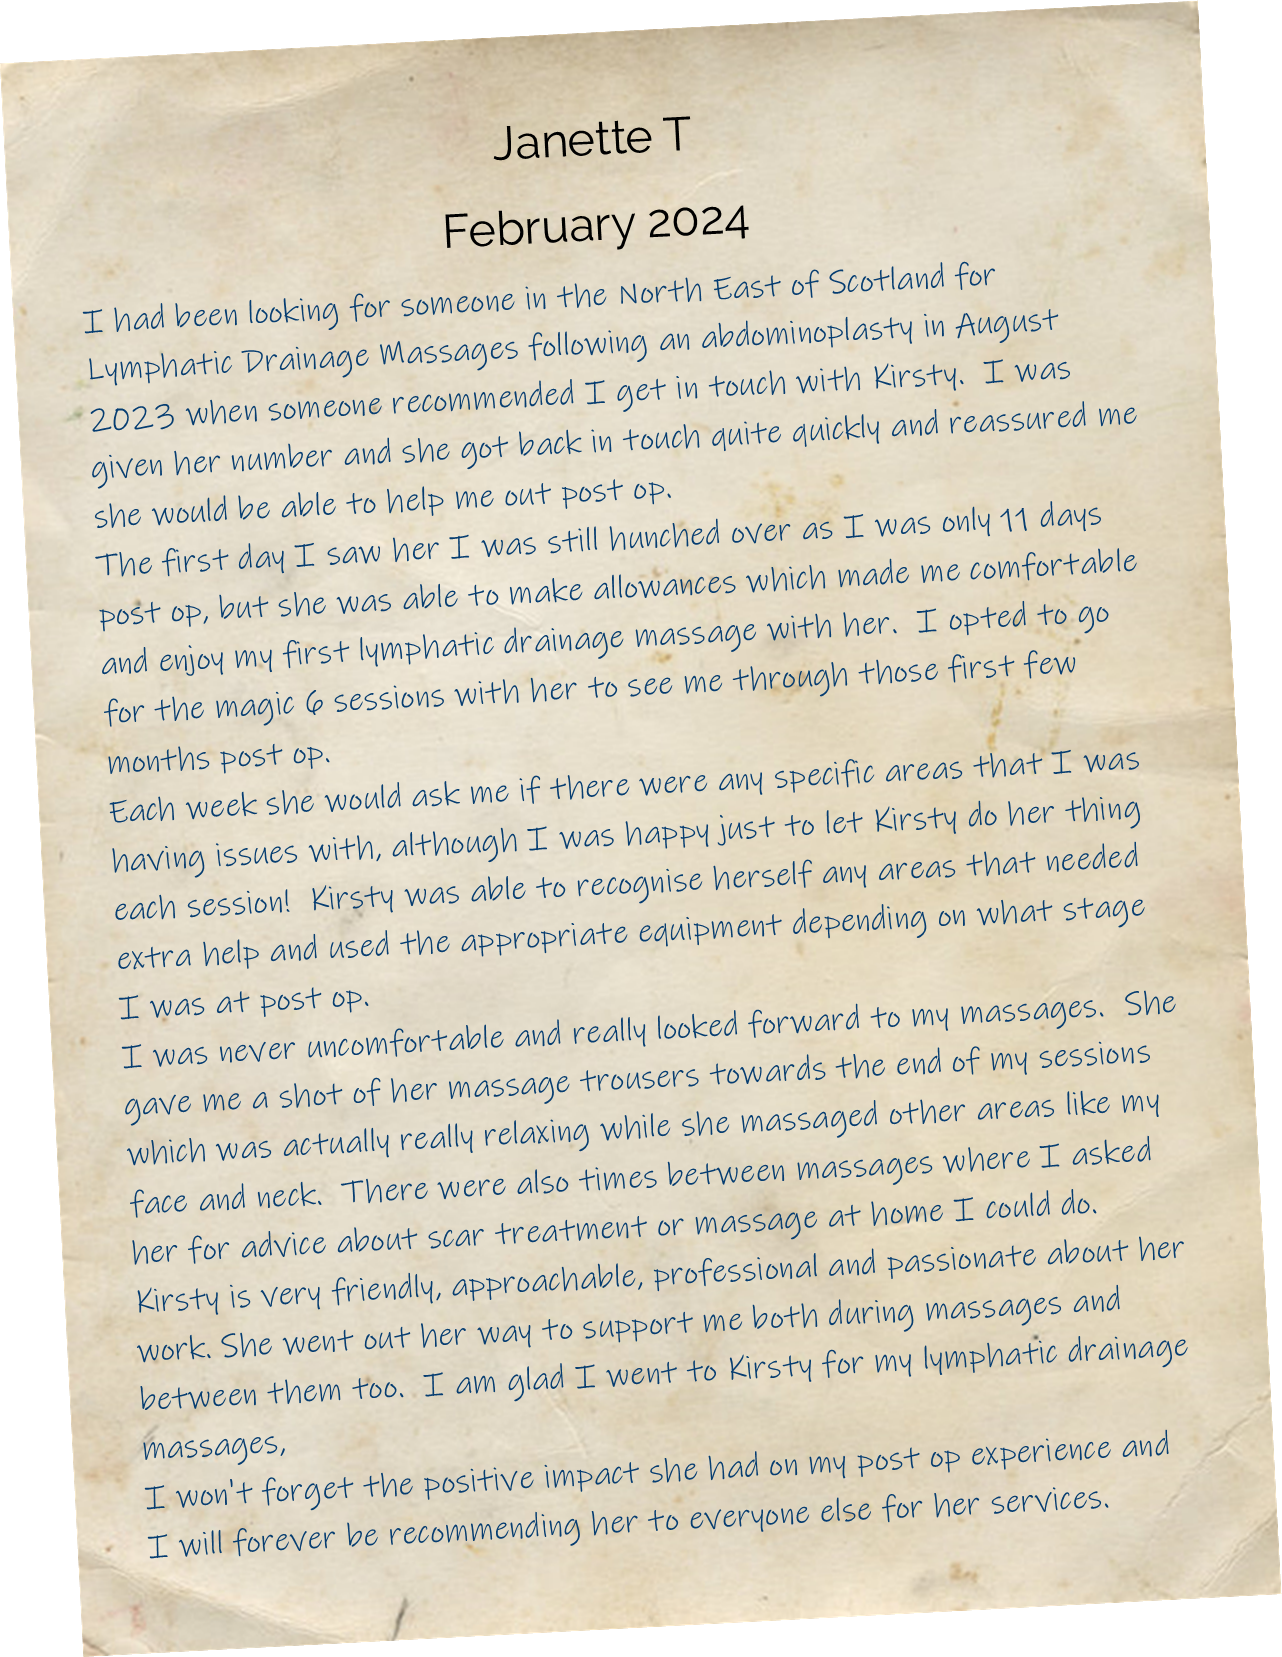 Janette T
February 2024
I had been looking for someone in the North East of Scotland for
Lymphatic Drainage Massages following an abdominoplasty in August
2023 when someone recommended I get in touch with Kirsty.  I was
given her number and she got back in touch quite quickly and reassured me
she would be able to help me out post op.
The first day I saw her I was still hunched over as I was only 11 days
post op, but she was able to make allowances which made me comfortable
and enjoy my first lymphatic drainage massage with her.  I opted to go
for the magic 6 sessions with her to see me through those first few
months post op.
Each week she would ask me if there were any specific areas that I was
having issues with, although I was happy just to let Kirsty do her thing
each session!  Kirsty was able to recognise herself any areas that needed
extra help and used the appropriate equipment depending on what stage
I was at post op.
I was never uncomfortable and really looked forward to my massages.  She
gave me a shot of her massage trousers towards the end of my sessions
which was actually really relaxing while she massaged other areas like my
face and neck.  There were also times between massages where I asked
her for advice about scar treatment or massage at home I could do.
Kirsty is very friendly, approachable, professional and passionate about her
work. She went out her way to support me both during massages and
between them too.  I am glad I went to Kirsty for my lymphatic drainage
massages,
I won't forget the positive impact she had on my post op experience and
I will forever be recommending her to everyone else for her services.